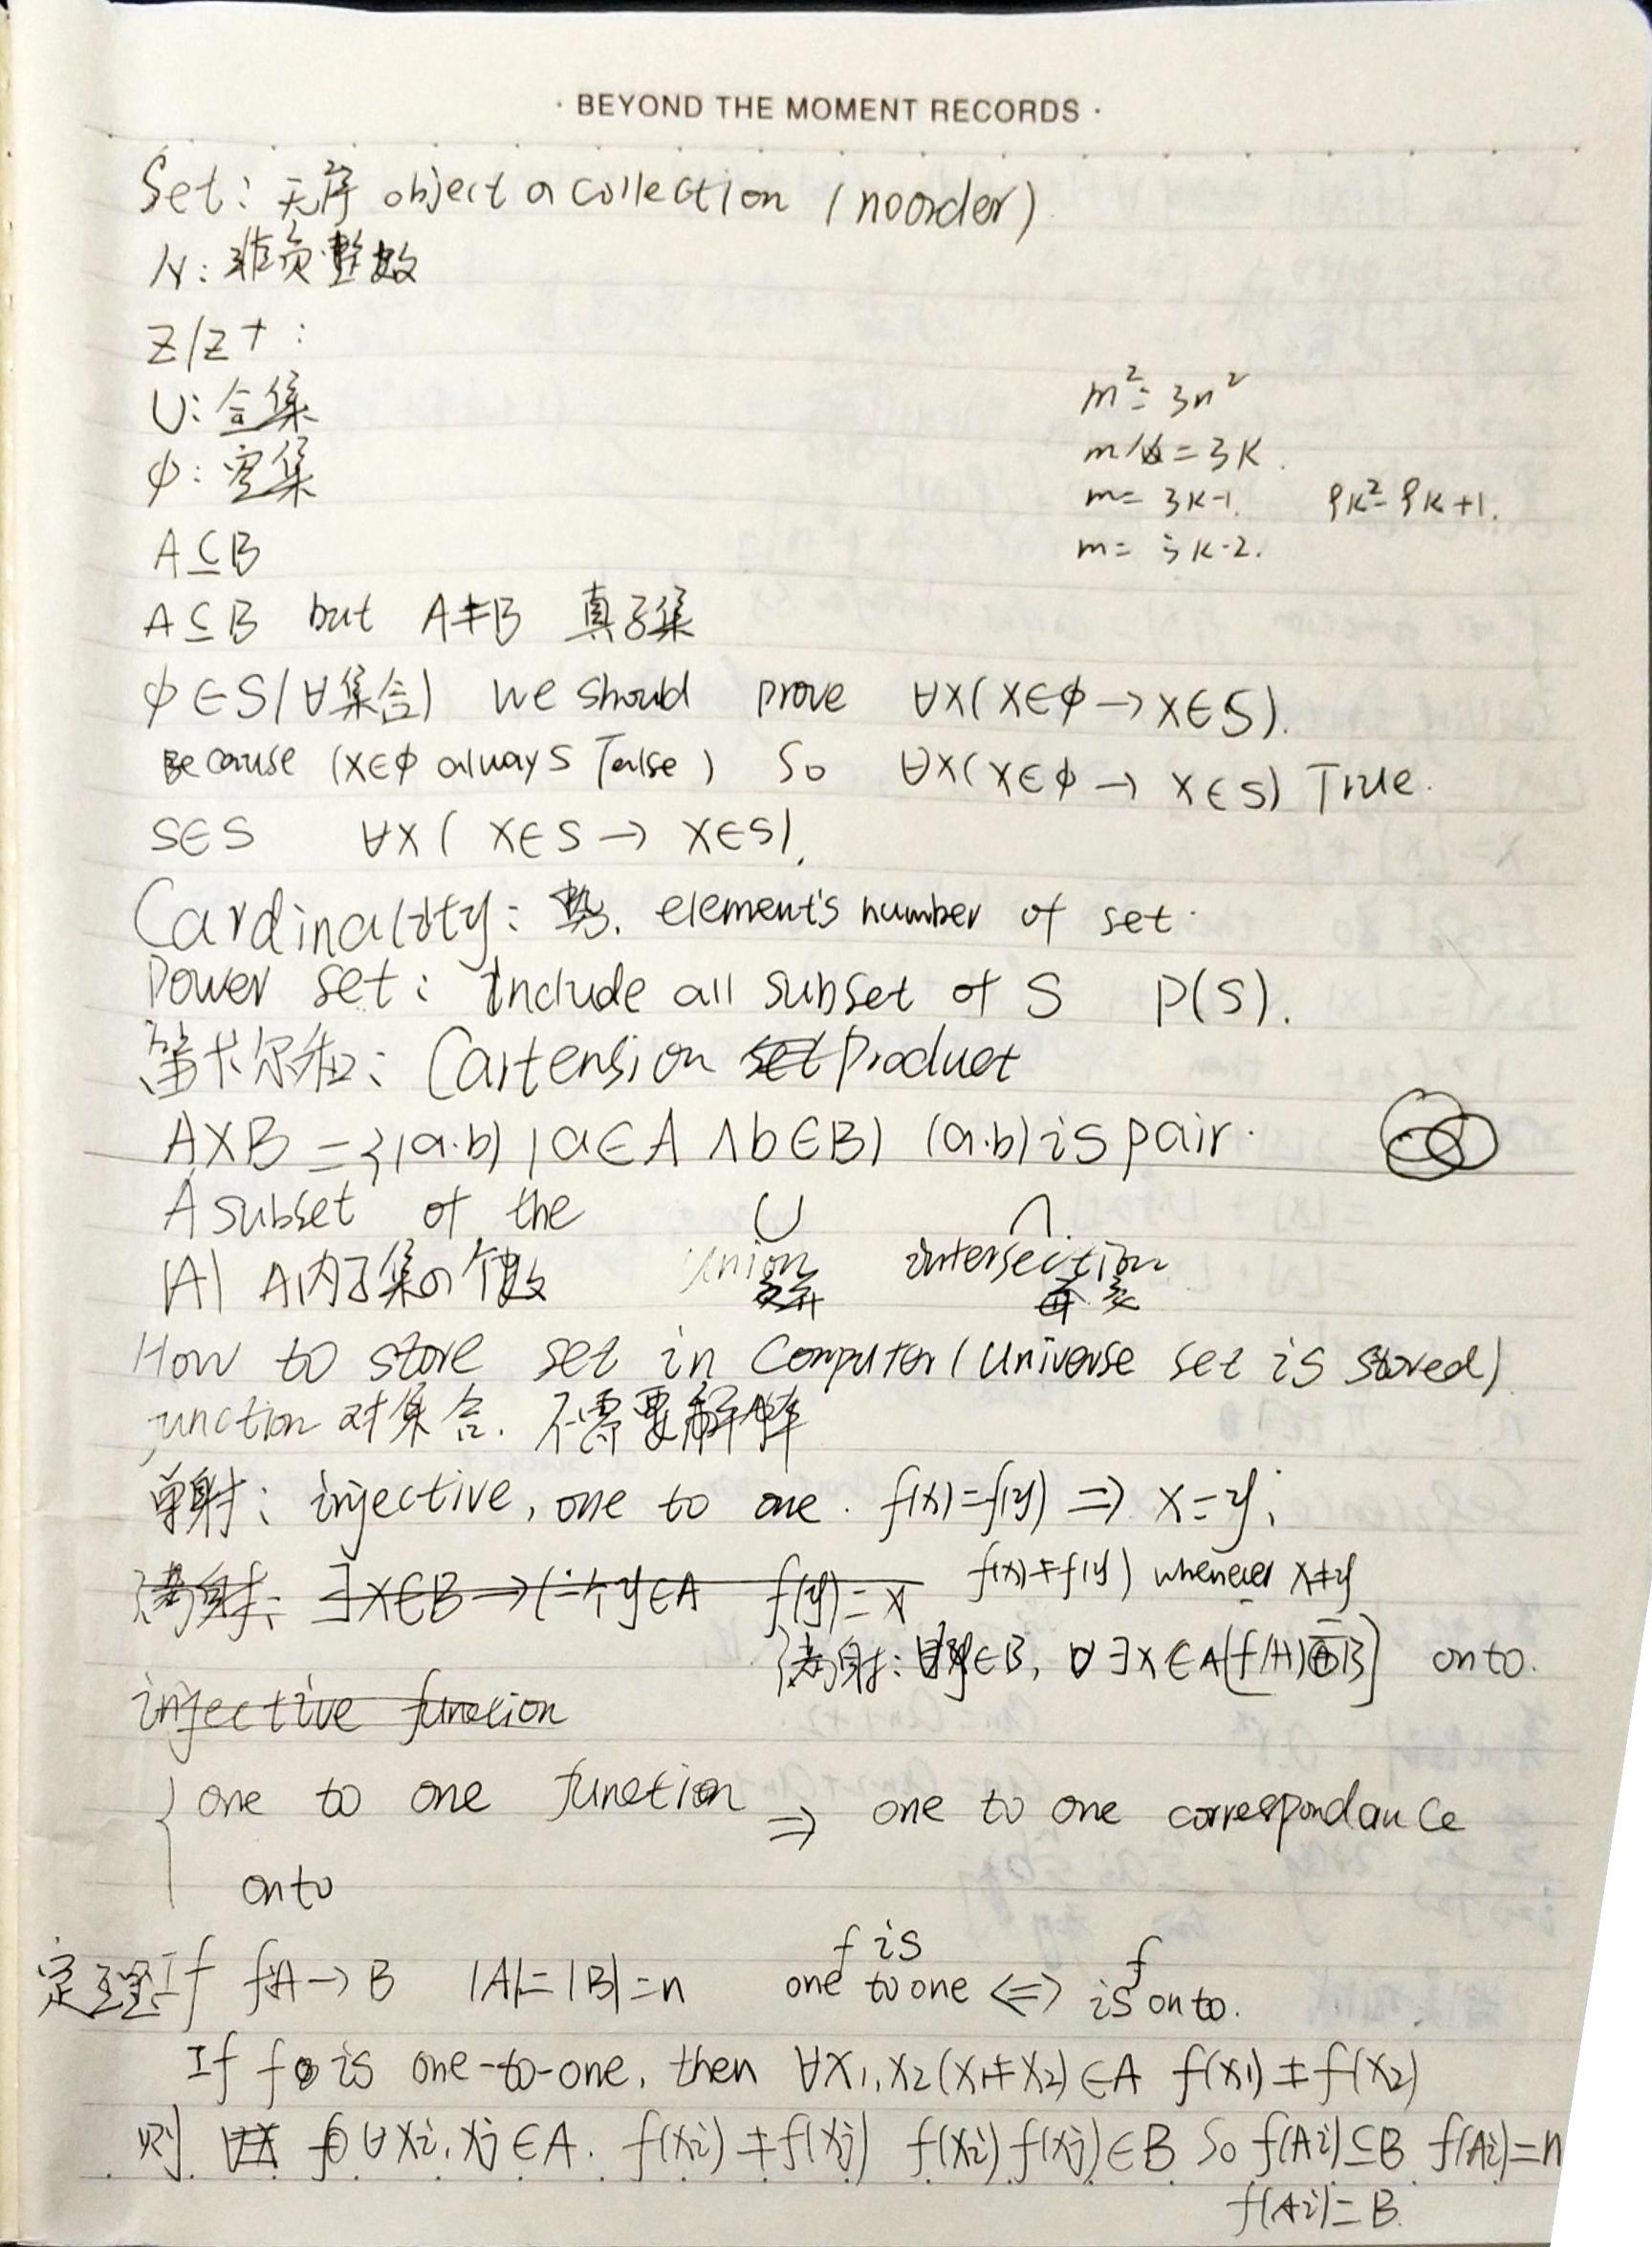 · BEYOND THE MOMENT RECORDS ·
Set: 无序 object a collection (noorder)
N: 非负整数
Z/Z+:
U: 全集
m² = 3n²
ϕ: 空集
m = 3K.
m = 3K-1. 9K²-9K+1.
A⊆B
m = 3K-2.
A⊆B but A≠B 真子集
ϕ∈S(∀集合) we should prove ∀x(x∈ϕ→x∈S).
Because (x∈ϕ always False) So ∀x(x∈ϕ→x∈S) True.
S∈S ∀x(x∈S→x∈S).
Cardinality: 势. element's number of set.
Power set: include all subset of S P(S).
笛卡尔积: Cartension set Product
A×B = {(a.b) | a∈A ∧ b∈B) (a.b) is pair.
A subset of the ∪ ∩
|A| A内子集の个数 union intersection
并 交
How to store set in Computer (Universe set is stored)
function 对集合. 不需要解释
单射: injective, one to one. f(x)=f(y) ⇒ x=y.
满射: ∃x∈B→(一个y∈A f(y)=x f(x)≠f(y) whenever x≠y
满射: ∈B, ∃x∈A onto.
injective function
one to one function ⇒ one to one correspondance
onto
定理: If f:A→B |A|=|B|=n f is one to one ⇔ f is onto.
If f is one-to-one, then ∀x₁,x₂(x₁≠x₂)∈A f(x₁)≠f(x₂)
则 ∀xi,xj∈A. f(xi)≠f(xj) f(xi) f(xj)∈B So f(Ai)⊆B f(Ai)=n
f(Ai)=B.